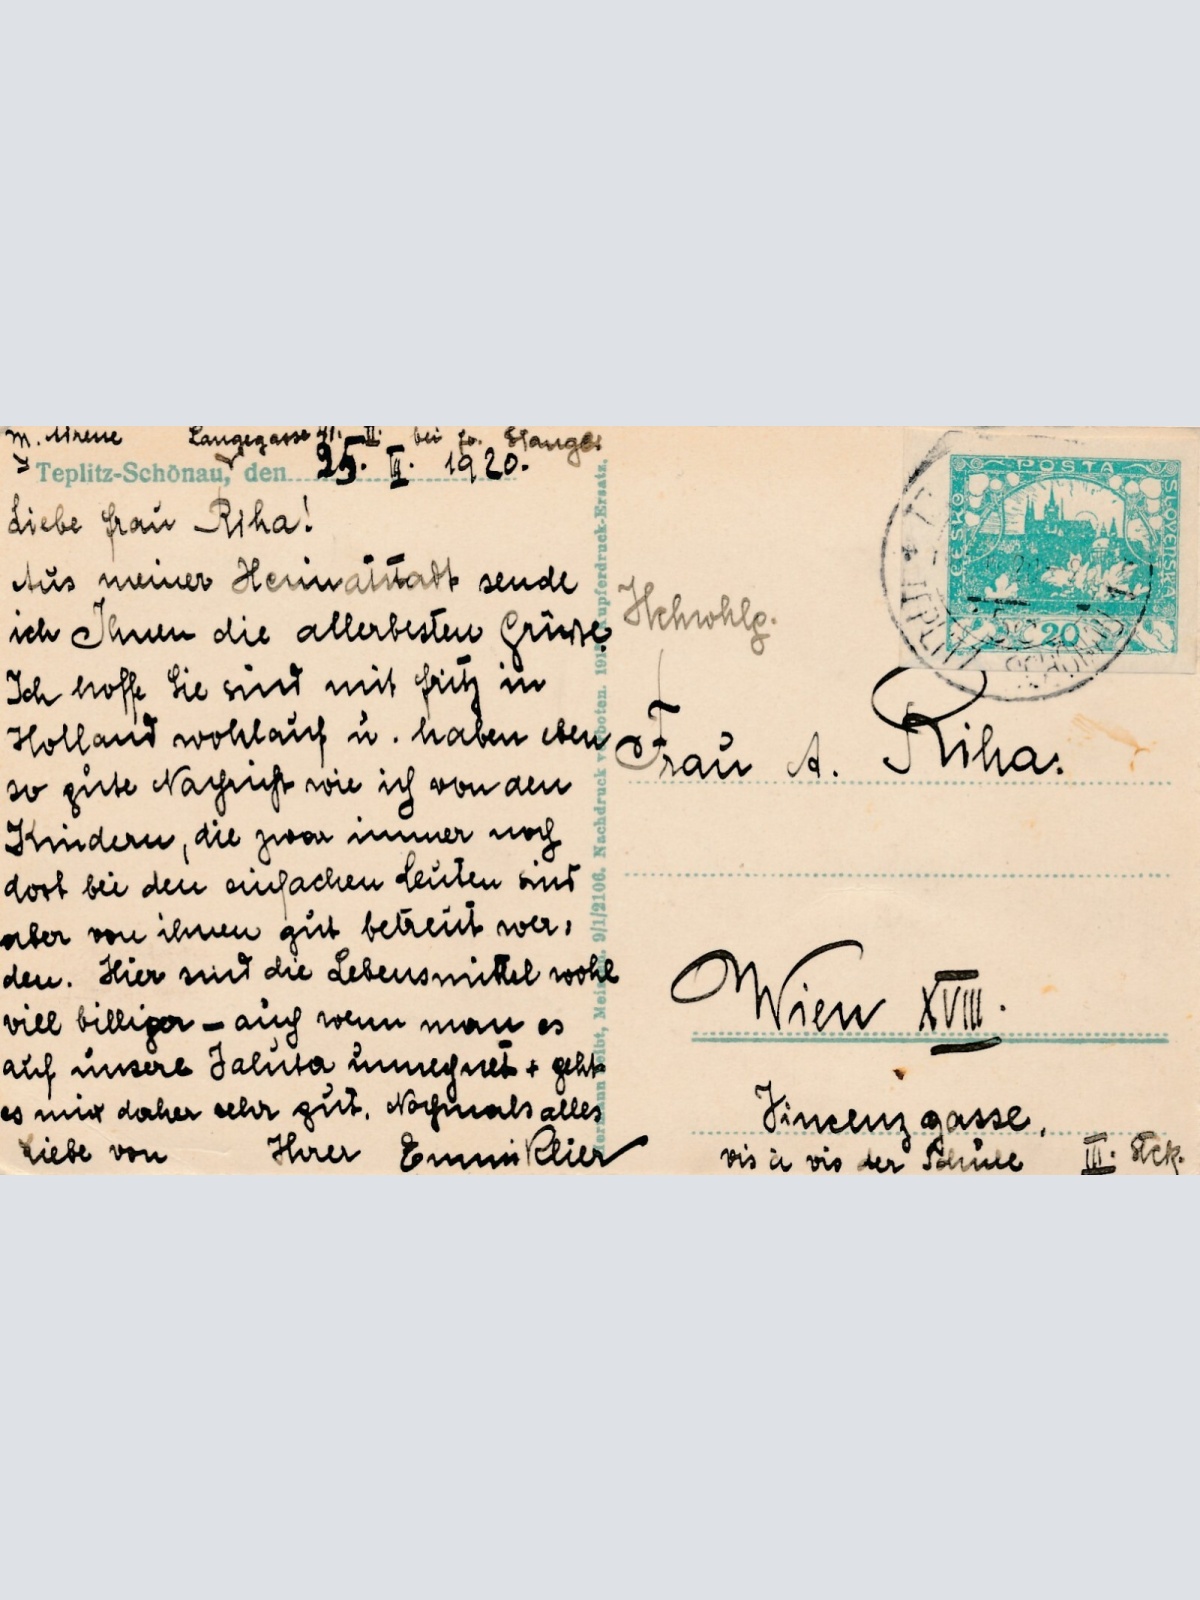 M. Adresse Langegasse 41. II. bei Fr. Stangl.
Teplitz-Schönau, den 25. II. 1920.
Liebe Frau Riha!
Aus meiner Heimatstadt sende
ich Ihnen die allerbesten Grüße.
Ich hoffe Sie sind mit Fritz in
Holland wohlauf u. haben eben
so gute Nachricht wie ich von den
Kindern, die zwar immer noch
dort bei den einfachen Leuten sind
aber von ihnen gut betreut wer-
den. Hier sind die Lebensmittel wohl
viel billiger – auch wenn man es
auf unsere Valuta umrechnet + geht
es mir daher sehr gut. Nochmals alles
Liebe von Ihrer Emmi Klier
Nachdruck verboten. Kupferdruck-Ersatz.
POSTA
ČESKO
SLOVENSKÁ
20
Hchwohlg.
Frau A. Riha.
Wien XVIII.
Vincenzgasse,
vis à vis der Schule III. Stck.